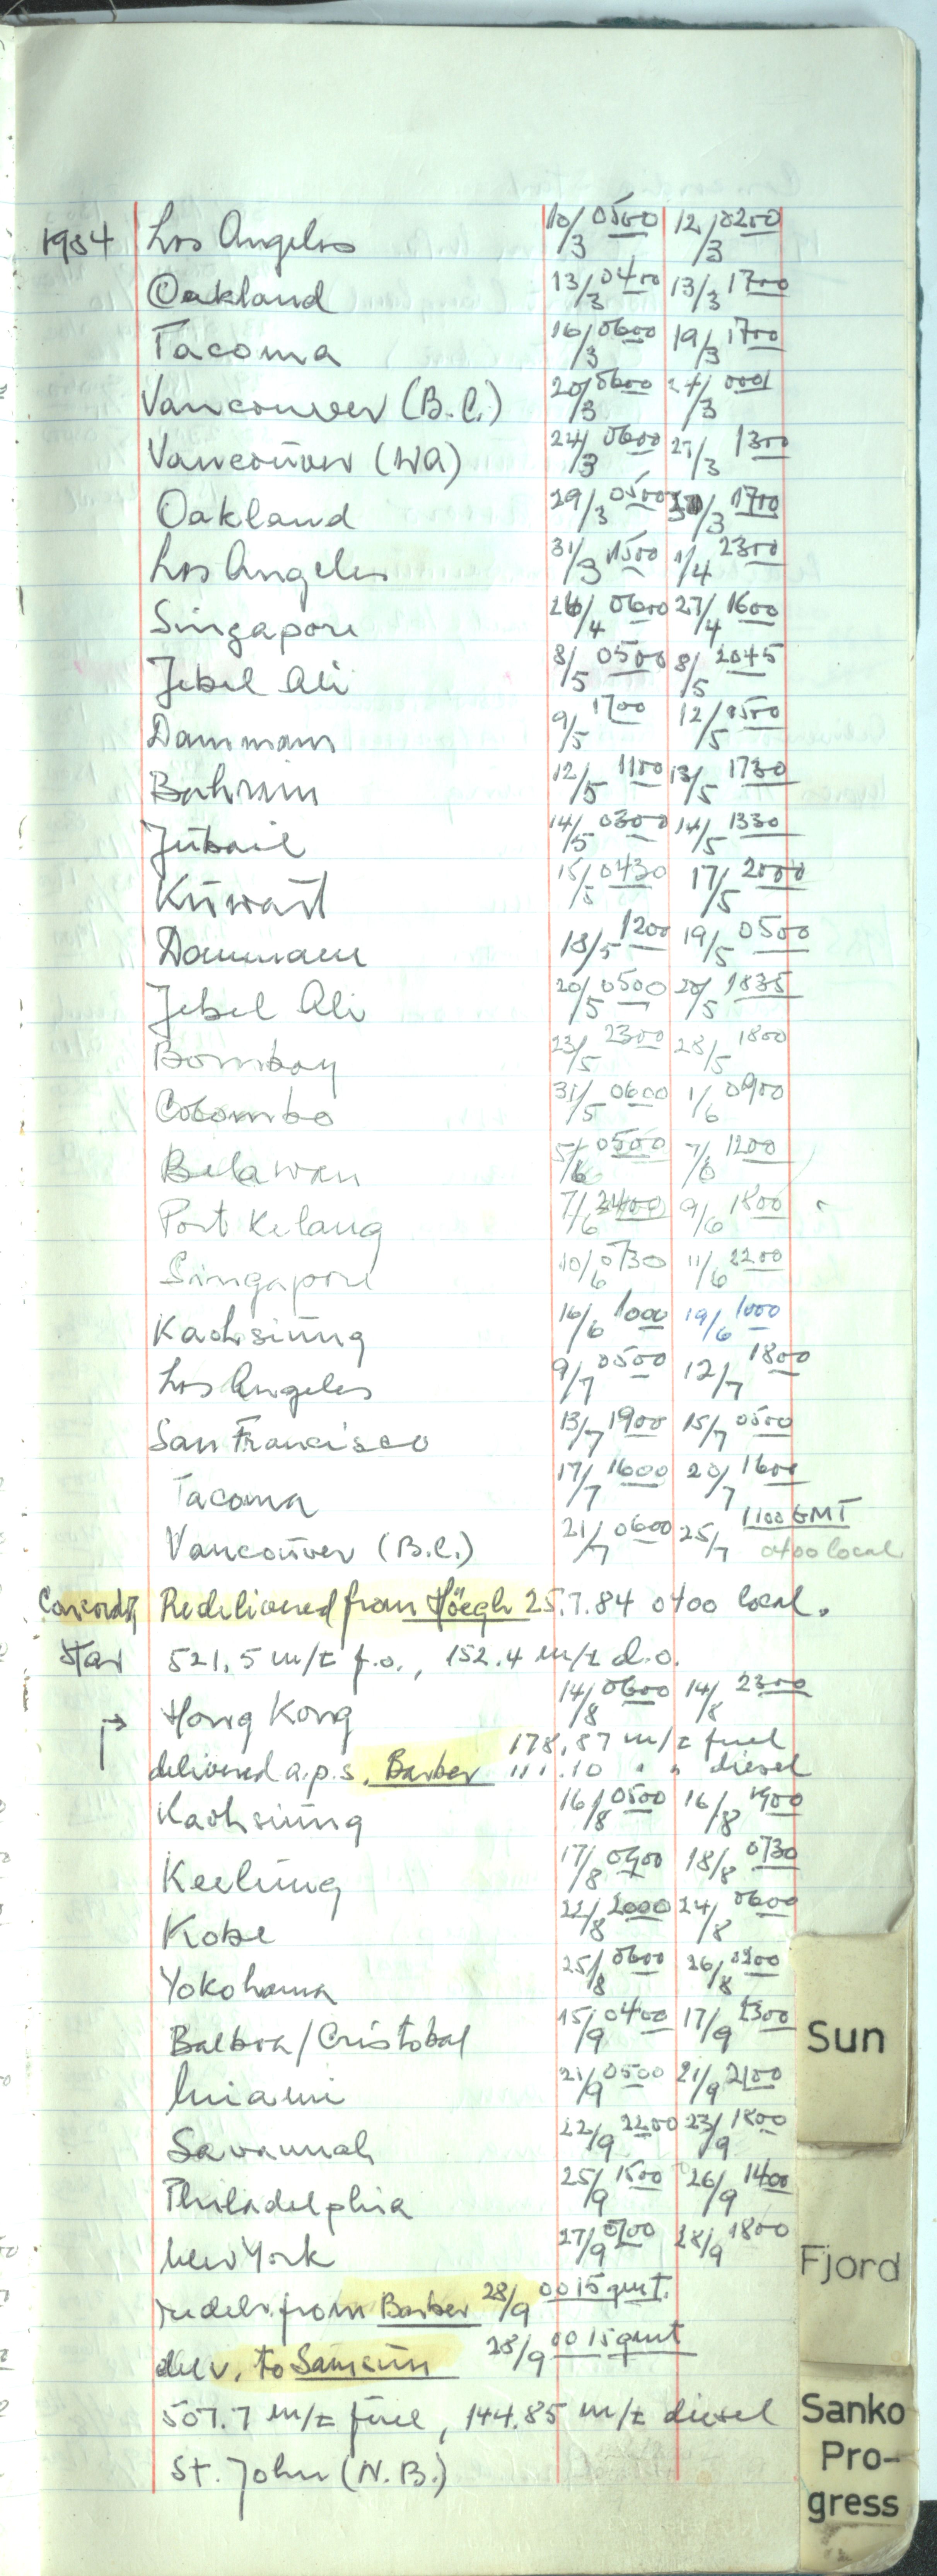 1984 Los Angeles 10/3 0500 12/3 0200
Oakland 13/3 0400 13/3 1700
Tacoma 16/3 0600 19/3 1700
Vancouver (B.C.) 20/3 0600 24/3 0001
Vancouver (WA) 24/3 0600 27/3 1300
Oakland 29/3 0500 /3 1700
Los Angeles 31/3 1500 1/4 2300
Singapore 26/4 0600 27/4 1600
Jebel Ali 8/5 0500 8/5 2045
Dammam 9/5 1700 12/5 0500
Bahrain 12/5 1100 13/5 1730
Jubail 14/5 0300 14/5 1330
Kuwait 15/5 0430 17/5 2000
Dammam 18/5 1200 19/5 0500
Jebel Ali 20/5 0500 20/5 1835
Bombay 23/5 2300 28/5 1800
Colombo 31/5 0600 1/6 0900
Belawan 5/6 0500 7/6 1200
Port Kelang 7/6 2400 9/6 1800
Singapore 10/6 0730 11/6 2200
Kaohsiung 16/6 1000 19/6 1000
Los Angeles 9/7 0500 12/7 1800
San Francisco 13/7 1900 15/7 0500
Tacoma 17/7 1600 20/7 1600
Vancouver (B.C.) 21/7 0600 25/7 1100 GMT
0400 local
Concordia Redelivered from Höegh 25.7.84 0400 local.
Star 521,5 m/t f.o., 152.4 m/t d.o.
Hong Kong 14/8 0600 14/8 2300
178,87 m/t fuel
delivered a.p.s. Barber 111.10 " " diesel
Kaohsiung 16/8 0500 16/8 1900
Keelung 17/8 0900 18/8 0730
Kobe 22/8 2000 24/8 0600
Yokohama 25/8 0600 26/8
Balboa/Cristobal 15/9 0400 17/9 2300
Miami 21/9 0500 21/9 2100
Savannah 22/9 2200 23/9 1800
Philadelphia 25/9 1500 26/9 1400
New York 27/9 0700 28/9 1800
redelv. from Barber 28/9 0015 gmt.
delv. to Samsun 28/9 0015 gmt
507.7 m/t fuel, 144.85 m/t diesel
St. John (N.B.)
Sun
Fjord
Sanko
Pro-
gress